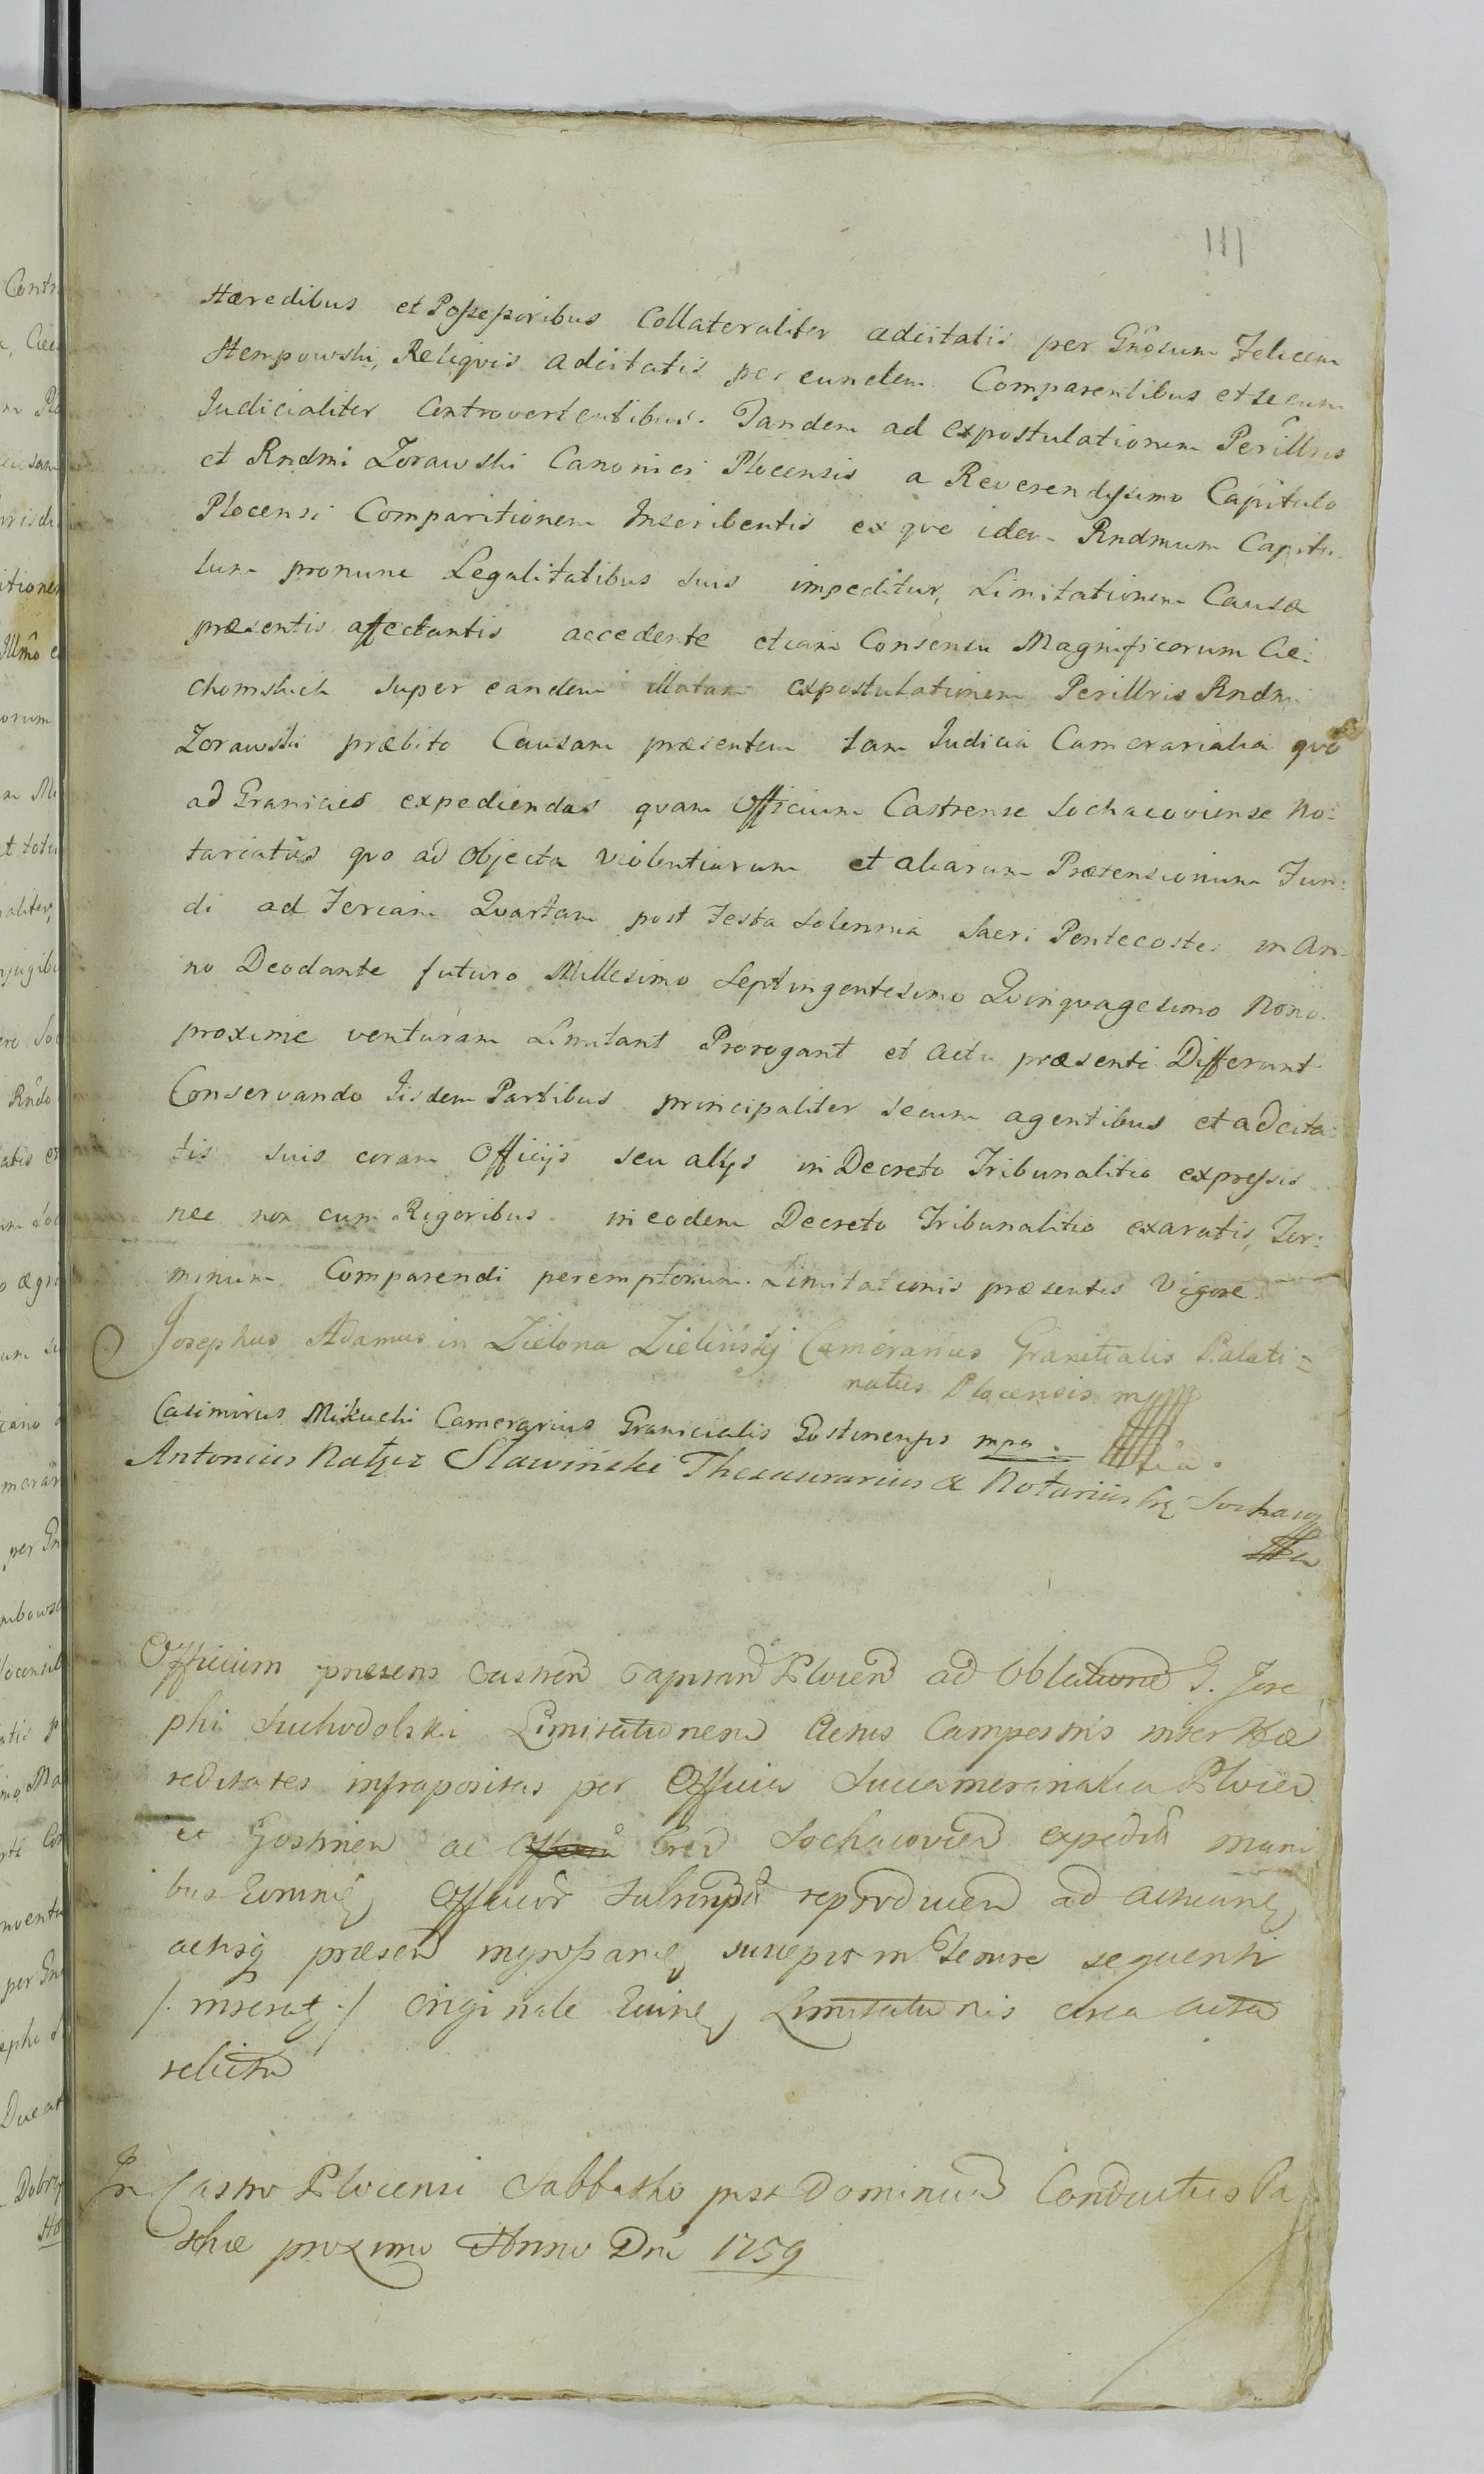 111
Hæredibus et Possessoribus Collateraliter adcitatis per Gnôsum Felicem
Stempowski, Reliqvis adcitatis per eundem Comparentibus et secum
Judicialiter Controvertentibus. Tandem ad expostulationem Perillris
et Rndmi Zorawski Canonici Plocensis a Reverendissimo Capitulo
Plocensi Comparitionem Inscribentis ex qvo idem Rndmum Capitu-
lum pronunc Legalitatibus suis impeditur, Limitationem Causæ
præsentis affectantis accedente etiam Consensu Magnificorum Cie:
chomskich super eandem illatam expostulationem Perillris Rndmi
Zorawski præbito Causam præsentem tam Judicia Camerarialia qvo
ad Granicies expediendas qvam Officium Castrense Sochacoviense No:
tariatûs qvo ad Objecta violentiarum et aliarum Prætensionum Fun:
di ad Feriam Qvartam post Festa Solennia Sacri Pentecostes in An-
no Deodante futuro Millesimo Septingentesimo Qvinqvagesimo Nono
proxime venturam Limitant Prorogant et actu præsenti Differunt
Conservando Iisdem Partibus principaliter secum agentibus et adcita:
tis suis coram Officijs seu alijs in Decreto Tribunalitio expressis
nec non cum Rigoribus in eodem Decreto Tribunalitio exaratis, Ter:
minum Comparendi peremptorium. Limitationis præsentis Vigore
Josephus Adamus in Zielona Zieliński Camerarius Granitialis Palati=
natus Plocensis mp
Casimirus Mikucki Camerarius Granicialis Gostinensis mpa
Antonius Natęcz Sławiński Thesaurarius & Notarius Sochacz
Officium præsens Castren Capitan Plocen ad Oblationem G. Jose
phi Suchodolski Limitationem Actus Campestris inter Hæ
reditates infrapositas per Officia Succamerarialia Plocen
et Gostinen ac Cren Sochacovien expedit mani
bus Officior Subscript reproducen ad
præsen suscepit in Tenore sequenti
/. inserat ./ Originale Limitationis circa acta
relicta
In Castro Plocensi Sabbatho post Dominicam Conductus Pa
schæ proximo Anno Dni 1759